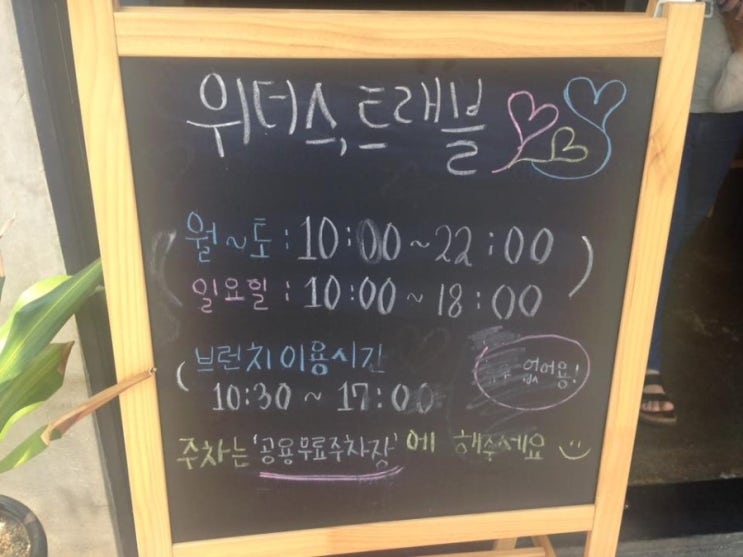 위더스,트래블
(월~토 : 10:00~22:00)
일요일 : 10:00~18:00
(브런치이용시간
10:30 ~ 17:00
없어용!
주차는 '공용무료주차장'에 해주세요